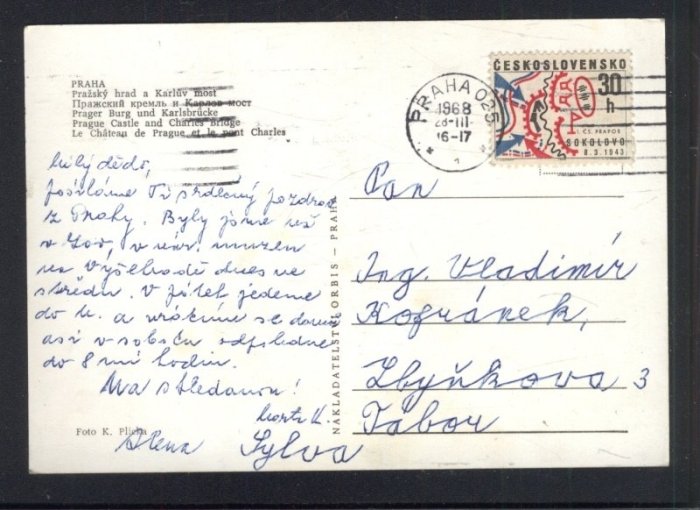 PRAHA
Pražský hrad a Karlův most
Пражский кремль и Карлов мост
Prager Burg und Karlsbrücke
Prague Castle and Charles Bridge
Le Château de Prague et le pont Charles
ČESKOSLOVENSKO
30
h
1. ČS. PRAPOR
SOKOLOVO
8. 3. 1943
PRAHA 025
1968
28-III
16-17
1
Milý dědo,
posíláme Ti srdečný pozdrav
z Prahy. Byly jsme už
v Zoo, v nár. muzeu
na Vyšehradě dnes ve
středu. V pátek jedeme
do
a vrátíme se domů
asi v sobotu odpoledne
do 8 mi hodin.
Na shledanou!
Alena
Sylva
Foto K. Plicka
NAKLADATELSTVÍ ORBIS — PRAHA
Pan
Ing. Vladimír
Kofránek,
Zbyňkova 3
Tábor